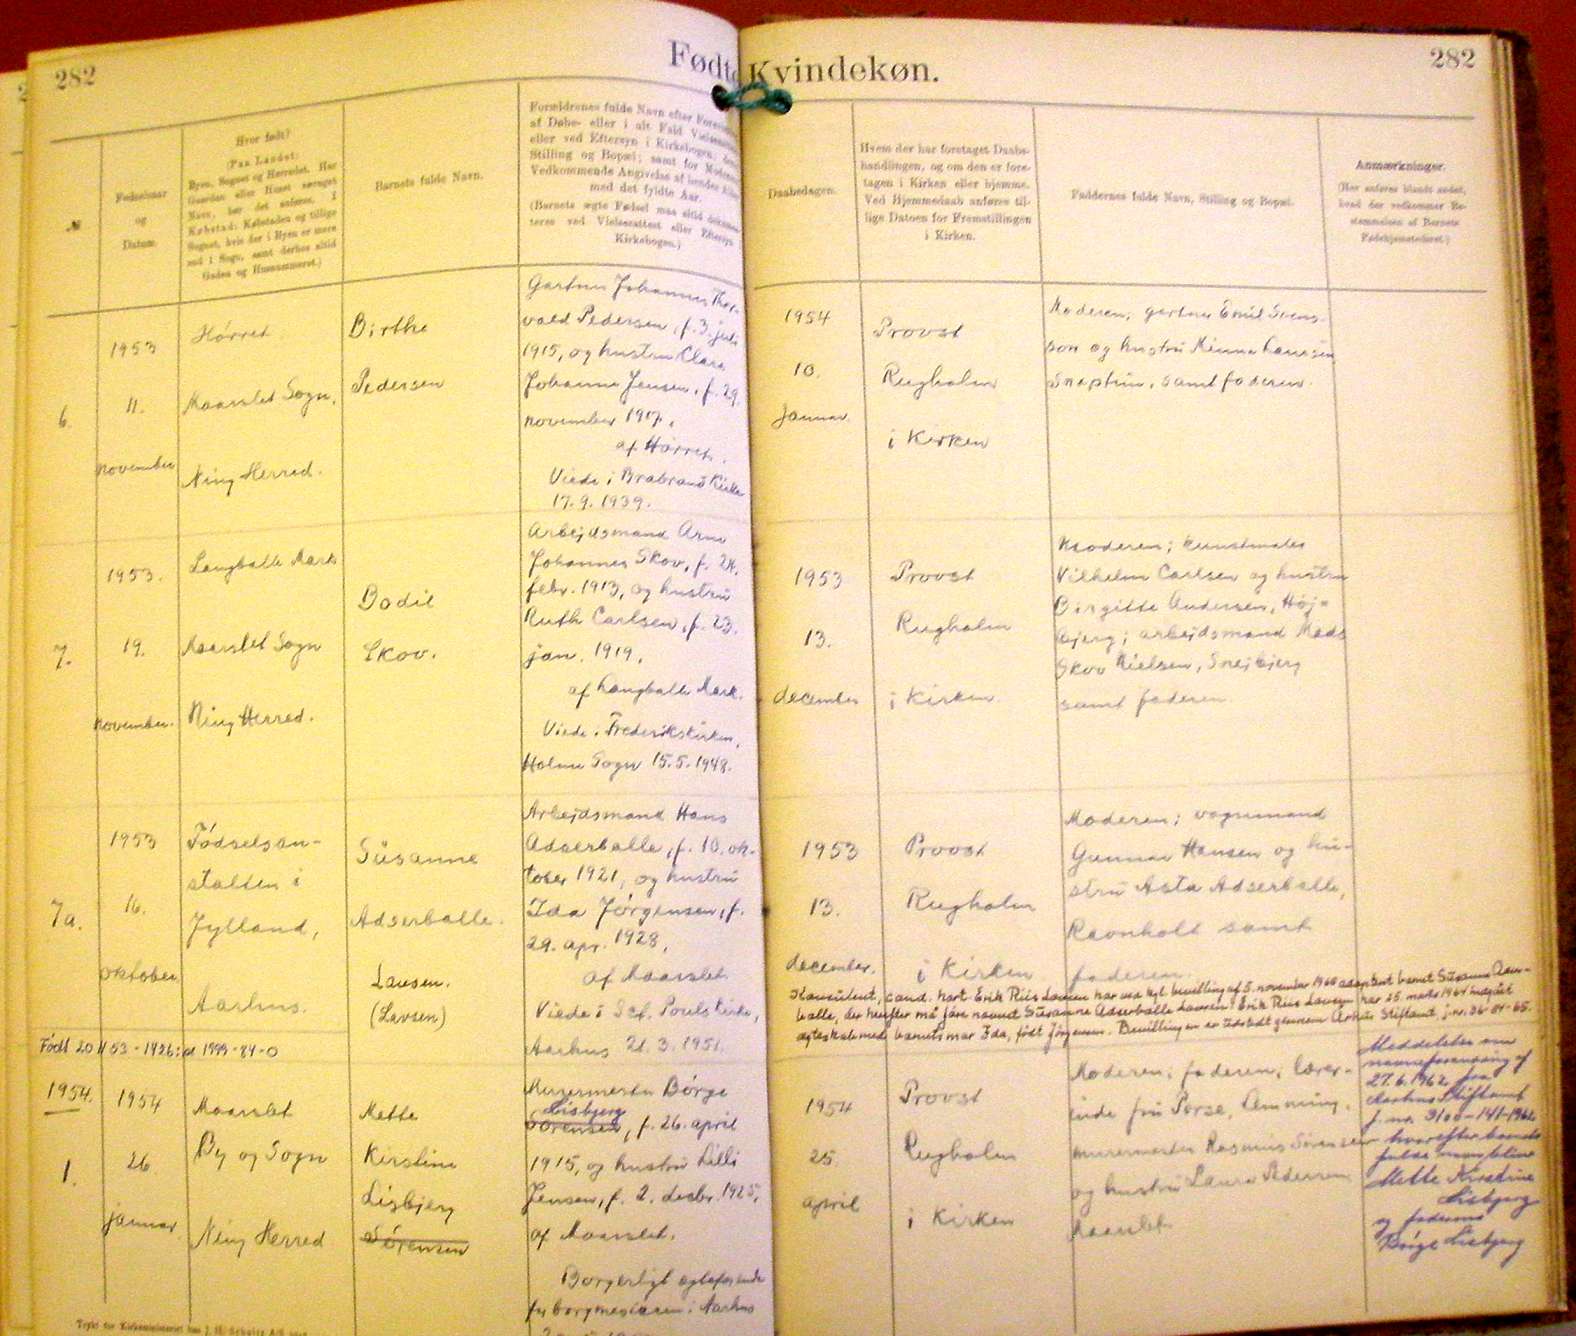 282
Fødte Kvindekøn.
282
№
Fødselsaar
og
Datum.
Hvor født?
(Paa Landet:
Byen, Sognet og Herredet. Har
Gaarden eller Huset særeget
Navn, bør det anføres. I
Købstad: Købstaden og tillige
Sognet, hvis der i Byen er mere
end 1 Sogn, samt derhos altid
Gaden og Husnummeret.)
Barnets fulde Navn.
Forældrenes fulde Navn efter
af Døbe- eller i alt Fald
eller ved Eftersyn i Kirkebogen;
Stilling og Bopæl; samt for
Vedkommende Angivelse af hendes
med det fyldte Aar.
(Barnets ægte Fødsel maa altid
teres ved Vielsesattest eller Eftersyn
Kirkebogen.)
Daabsdagen.
Hvem der har foretaget Daabs-
handlingen, og om den er fore-
tagen i Kirken eller hjemme.
Ved Hjemmedaab anføres til-
lige Datoen for Fremstillingen
i Kirken.
Faddernes fulde Navn, Stilling og Bopæl.
Anmærkninger.
(Her anføres blandt andet,
hvad der vedkommer Be-
stemmelsen af Barnets
Fødehjemsteder.)
6.
1953
11.
november
Hørret
Maarslet Sogn,
Ning Herred.
Birthe
Pedersen
Gartner Johannes Thor-
vald Pedersen, f. 3. juli
1915, og hustru Clara
Johanne Jensen, f. 29.
november 1917,
af Hørret.
Viede i Brabrand Kirke
17.9.1939.
1954
10.
januar
Provst
Rugholm
i Kirken
Moderen; gartner Emil Svens-
son og hustru Minna Laursen
Snaptun, samt faderen.
7.
1953.
19.
november.
Langballe Mark
Maarslet Sogn
Ning Herred.
Bodil
Skov.
Arbejdsmand Arne
Johannes Skov, f. 24.
febr. 1913, og hustru
Ruth Carlsen, f. 23.
jan. 1919,
af Langballe Mark.
Viede i Frederikskirken,
Holme Sogn 15.5.1948.
1953
13.
december
Provst
Rugholm
i Kirken.
Moderen; kunstmaler
Vilhelm Carlsen og hustru
Birgitte Andersen, Høj-
bjerg; arbejdsmand Mads
Skov Nielsen, Snejbjerg
samt faderen.
7a.
1953
16.
oktober
Fødselsan-
stalten i
Jylland,
Aarhus.
Susanne
Adserballe.
Lausen.
(Lavsen)
Arbejdsmand Hans
Adserballe, f. 10. ok-
tober 1921, og hustru
Ida Jørgensen, f.
29. apr. 1928,
af Maarslet.
Viede i Sct. Pouls Kirke,
Aarhus 21.3.1951.
1953
13.
december.
Provst
Rugholm
i Kirken
Moderen; vognmand
Gunnar Hansen og hu-
stru Asta Adserballe,
Ravnholt samt
faderen.
Konsulent, cand. hort. Erik Riis Lausen har ved kgl. bevilling af 5. november 1968 adopteret barnet Susanne Adser-
balle, der herefter må føre navnet Susanne Adserballe Lausen. Erik Riis Lausen har 25. marts 1964 indgået
ægteskab med barnets mor Ida, født Jørgensen. Bevillingen er udstedt gennem Århus Stiftamt, j.nr. 36-04-65.
Født 20 1953-1426:
1954.
1.
1954
26.
januar
Maarslet
By og Sogn
Ning Herred
Mette
Kirstine
Lisbjerg
Sørensen
Murermester Børge
Lisbjerg
Sørensen, f. 26. april
1915, og hustru Lilli
Jensen, f. 2. decbr. 1925,
af Maarslet.
Borgerligt
for borgmesteren i Aarhus
1954
25.
april
Provst
Rugholm
i Kirken
Moderen; faderen; lærer-
inde fru Perse, Amning,
murermester Rasmus Sørensen
og hustru Laura Pedersen
Maarslet.
Meddelelse om
navneforandring af
27.6.1962 fra
Aarhus Stiftamt
j.nr. 3100-141-1962
hvorefter barnets
fulde navn bliver
Mette Kirstine
Lisbjerg
og faderens
Børge Lisbjerg